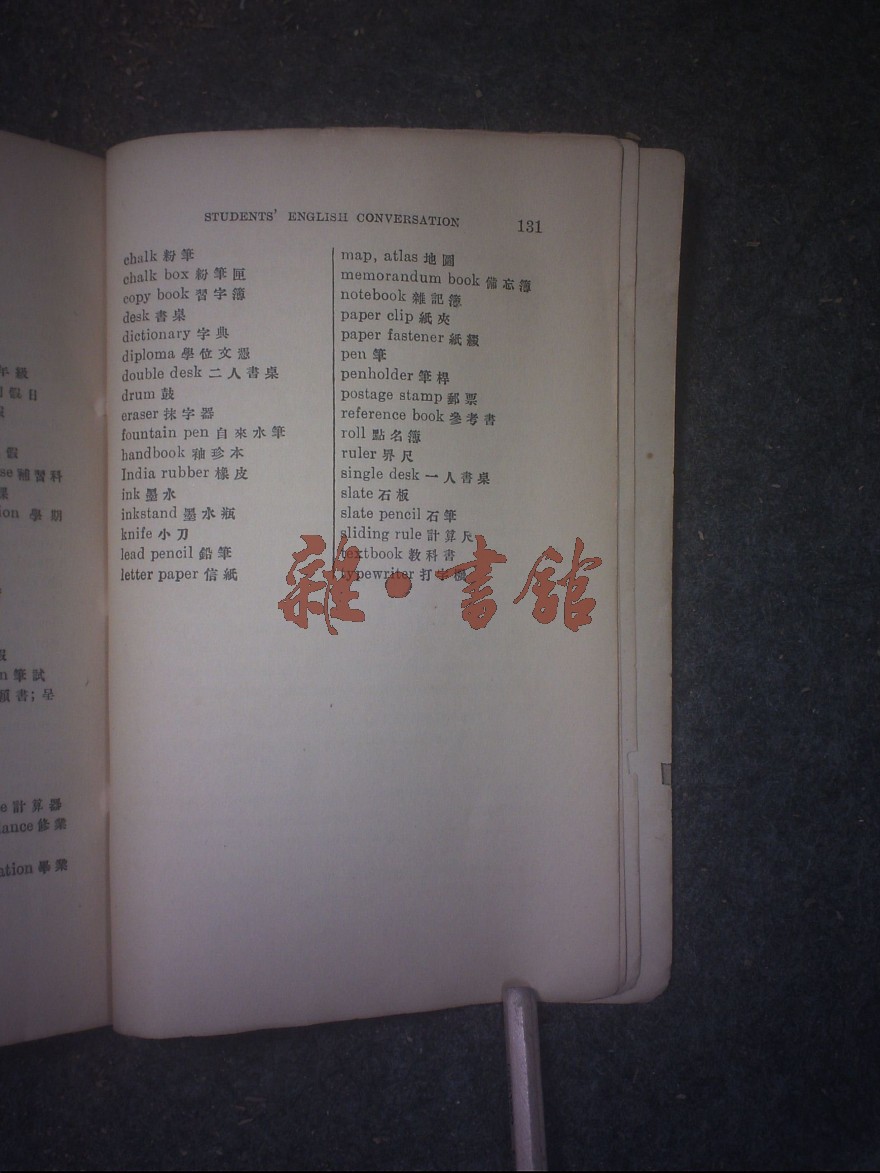 年級
假日
假
se 補習科
ion 學期
n 筆試
願書; 呈
e 計算器
dance 修業
ation 畢業
STUDENTS' ENGLISH CONVERSATION 131
chalk 粉筆
chalk box 粉筆匣
copy book 習字簿
desk 書桌
dictionary 字典
diploma 學位文憑
double desk 二人書桌
drum 鼓
eraser 抹字器
fountain pen 自來水筆
handbook 袖珍本
India rubber 橡皮
ink 墨水
inkstand 墨水瓶
knife 小刀
lead pencil 鉛筆
letter paper 信紙
map, atlas 地圖
memorandum book 備忘簿
notebook 雜記簿
paper clip 紙夾
paper fastener 紙綴
pen 筆
penholder 筆桿
postage stamp 郵票
reference book 參考書
roll 點名簿
ruler 界尺
single desk 一人書桌
slate 石板
slate pencil 石筆
sliding rule 計算尺
textbook 教科書
typewriter 打字機
雜·書館